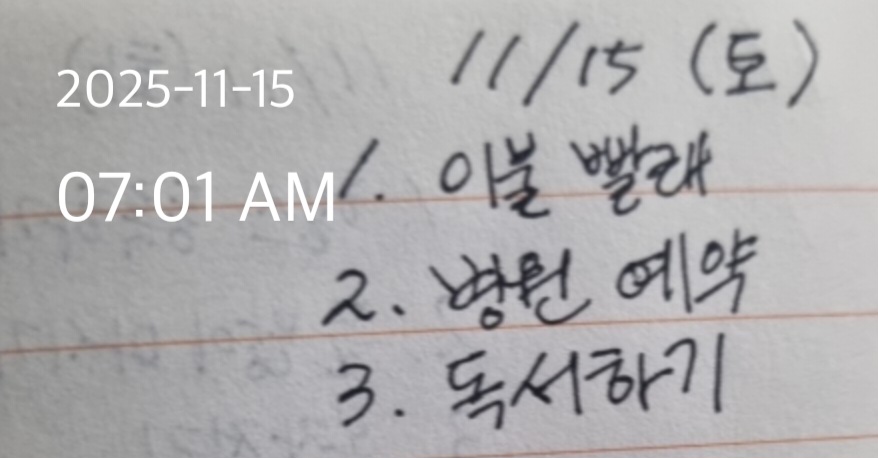 2025-11-15
07:01 AM
11/15 (토)
1. 이불 빨래
2. 병원 예약
3. 독서하기